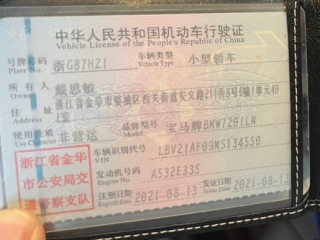 中华人民共和国机动车行驶证
Vehicle License of the People's Republic of China
号牌号码 浙G87HZ1 车辆类型 小型轿车
Plate No. Vehicle Type
所有人 戴思敏
Owner
住址 浙江省金华市婺城区西关街道安文路211弄5号6幢1单元40
Address 1室
使用性质 非营运 品牌型号 宝马牌BMW7201LN
Use Character Model
车辆识别代号 LBV21AF09MS134550
VIN
浙江省金华
市公安局交
通警察支队
发动机号码 A532E335
Engine No.
注册日期 2021-08-13 发证日期 2021-08-13
Register Date Issue Date